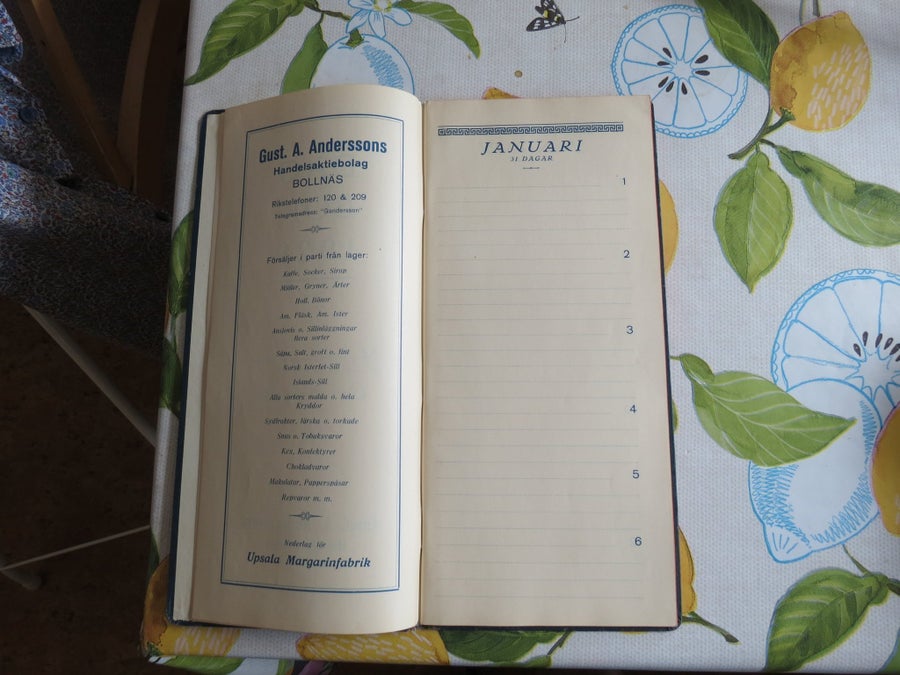 Gust. A. Anderssons
Handelsaktiebolag
BOLLNÄS
Rikstelefoner: 120 & 209
Telegramadress: "Gandersson"
Försäljer i parti från lager:
Kaffe, Socker, Sirap
Mjöler, Gryner, Ärter
Holl. Bönor
Am. Fläsk, Am. Ister
Ansjovis o. Sillinläggningar
flera sorter
Såpa, Salt, groft o. fint
Norsk Isterlet-Sill
Islands-Sill
Alla sorters malda o. hela
Kryddor
Sydfrukter, färska o. torkade
Snus o. Tobaksvaror
Kex, Konfektyrer
Chokladvaror
Makulatur, Papperspåsar
Repvaror m. m.
Nederlag för
Upsala Margarinfabrik
JANUARI
31 DAGAR
1
2
3
4
5
6